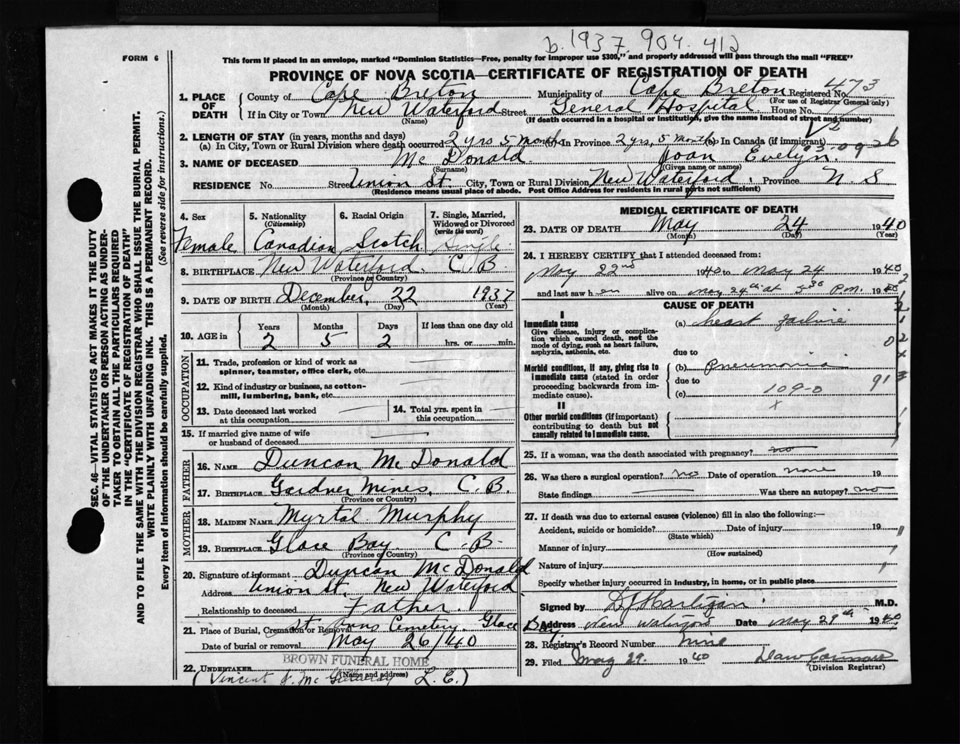 b. 1937. 904. 412
FORM 6
This form if placed in an envelope, marked "Dominion Statistics—Free, penalty for improper use $300," and properly addressed will pass through the mail "FREE"
PROVINCE OF NOVA SCOTIA—CERTIFICATE OF REGISTRATION OF DEATH
1. PLACE OF DEATH County of Cape Breton Municipality of Cape Breton Registered No. 473
(For use of Registrar General only)
If in City or Town New Waterford Street General Hospital House No.
(Name) (If death occurred in a hospital or institution, give the name instead of street and number)
2. LENGTH OF STAY (in years, months and days)
(a) In City, Town or Rural Division where death occurred 2 yrs 5 months (b) In Province 2 yrs, 5 months (c) in Canada (if immigrant)
03-09 26
3. NAME OF DECEASED Mc Donald Joan Evelyn.
(Surname) (Given name or names)
RESIDENCE No. Street Union St. City, Town or Rural Division New Waterford. Province N. S
(Residence means usual place of abode. Post Office Address for residents in rural parts not sufficient)
4. Sex Female
5. Nationality (Citizenship) Canadian
6. Racial Origin Scotch
7. Single, Married, Widowed or Divorced (write the word) Single
8. BIRTHPLACE New Waterford. C. B
(Province or Country)
9. DATE OF BIRTH December, 22 1937
(Month) (Day) (Year)
10. AGE in Years 2 Months 5 Days 2 If less than one day old
hrs. or min.
OCCUPATION
11. Trade, profession or kind of work as spinner, teamster, office clerk, etc.
12. Kind of industry or business, as cotton-mill, lumbering, bank, etc.
13. Date deceased last worked at this occupation
14. Total yrs. spent in this occupation
15. If married give name of wife or husband of deceased
FATHER
16. NAME Duncan McDonald
17. BIRTHPLACE Gardner Mines, C. B.
MOTHER
18. MAIDEN NAME Myrtal Murphy
19. BIRTHPLACE Glace Bay C-B-
(Province or Country)
20. Signature of informant Duncan McDonald
Address Union St. New Waterford
Relationship to deceased Father.
21. Place of Burial, Cremation or Removal St. Anns Cemetery. Glace Bay
Date of burial or removal May 26/40
BROWN FUNERAL HOME
22. UNDERTAKER
(Name and address)
(Vincent J. Mc Gillivray L. E.)
MEDICAL CERTIFICATE OF DEATH
23. DATE OF DEATH May 24 1940
(Month) (Day) (Year)
24. I HEREBY CERTIFY that I attended deceased from:
May 22nd 1940 to May 24 1940
and last saw h er alive on May 24th at 5 30 P.M. 1940
CAUSE OF DEATH
I
Immediate cause (a) heart failure
Give disease, injury or complication which caused death, not the mode of dying, such as heart failure, asphyxia, asthenia, etc.
due to
Morbid conditions, if any, giving rise to immediate cause (stated in order proceeding backwards from immediate cause). (b) Pneumonia
due to
(c) 109-0
x
91
II
Other morbid conditions (if important) contributing to death but not causally related to immediate cause.
25. If a woman, was the death associated with pregnancy? no
26. Was there a surgical operation? no Date of operation none 19
State findings Was there an autopsy? no
27. If death was due to external causes (violence) fill in also the following:—
Accident, suicide or homicide? Date of injury 19
(State which)
Manner of injury
(How sustained)
Nature of injury
Specify whether injury occurred in industry, in home, or in public place
Signed by D J Hartigan M.D.
Address New Waterford Date May 29th 1940
28. Registrar's Record Number nine
29. Filed May 29. 1940
(Division Registrar)
SEC. 46—VITAL STATISTICS ACT MAKES IT THE DUTY
OF THE UNDERTAKER OR PERSON ACTING AS UNDER-
TAKER TO OBTAIN ALL THE PARTICULARS REQUIRED
IN THE "CERTIFICATE OF REGISTRATION OF DEATH"
AND TO FILE THE SAME WITH THE DIVISION REGISTRAR WHO SHALL ISSUE THE BURIAL PERMIT.
WRITE PLAINLY WITH UNFADING INK. THIS IS A PERMANENT RECORD.
Every item of information should be carefully supplied. (See reverse side for instructions.)